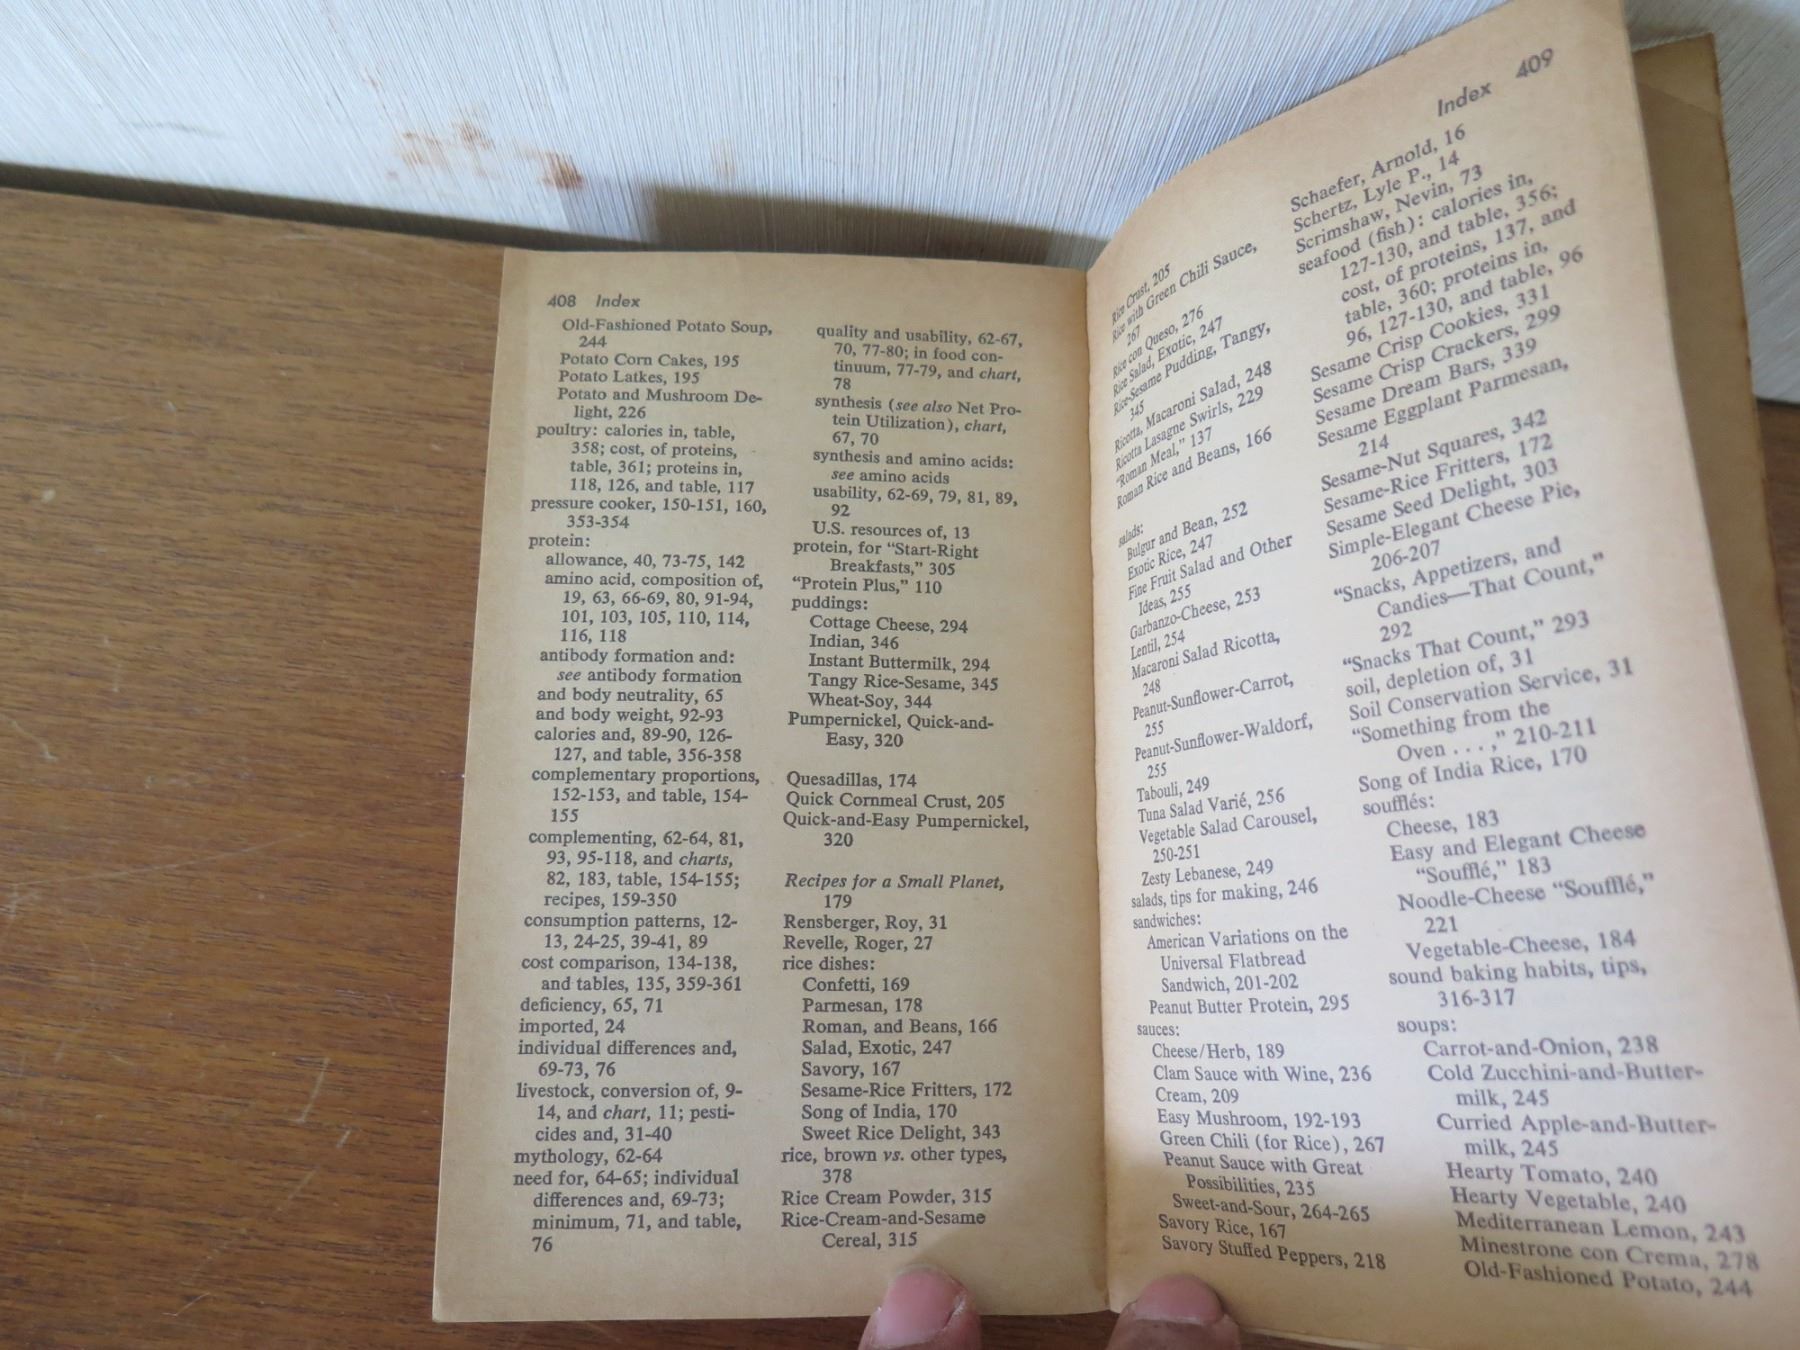 408 Index
Old-Fashioned Potato Soup,
244
Potato Corn Cakes, 195
Potato Latkes, 195
Potato and Mushroom De-
light, 226
poultry: calories in, table,
358; cost, of proteins,
table, 361; proteins in,
118, 126, and table, 117
pressure cooker, 150-151, 160,
353-354
protein:
allowance, 40, 73-75, 142
amino acid, composition of,
19, 63, 66-69, 80, 91-94,
101, 103, 105, 110, 114,
116, 118
antibody formation and:
see antibody formation
and body neutrality, 65
and body weight, 92-93
calories and, 89-90, 126-
127, and table, 356-358
complementary proportions,
152-153, and table, 154-
155
complementing, 62-64, 81,
93, 95-118, and charts,
82, 183, table, 154-155;
recipes, 159-350
consumption patterns, 12-
13, 24-25, 39-41, 89
cost comparison, 134-138,
and tables, 135, 359-361
deficiency, 65, 71
imported, 24
individual differences and,
69-73, 76
livestock, conversion of, 9-
14, and chart, 11; pesti-
cides and, 31-40
mythology, 62-64
need for, 64-65; individual
differences and, 69-73;
minimum, 71, and table,
76
quality and usability, 62-67,
70, 77-80; in food con-
tinuum, 77-79, and chart,
78
synthesis (see also Net Pro-
tein Utilization), chart,
67, 70
synthesis and amino acids:
see amino acids
usability, 62-69, 79, 81, 89,
92
U.S. resources of, 13
protein, for “Start-Right
Breakfasts,” 305
“Protein Plus,” 110
puddings:
Cottage Cheese, 294
Indian, 346
Instant Buttermilk, 294
Tangy Rice-Sesame, 345
Wheat-Soy, 344
Pumpernickel, Quick-and-
Easy, 320
Quesadillas, 174
Quick Cornmeal Crust, 205
Quick-and-Easy Pumpernickel,
320
Recipes for a Small Planet,
179
Rensberger, Roy, 31
Revelle, Roger, 27
rice dishes:
Confetti, 169
Parmesan, 178
Roman, and Beans, 166
Salad, Exotic, 247
Savory, 167
Sesame-Rice Fritters, 172
Song of India, 170
Sweet Rice Delight, 343
rice, brown vs. other types,
378
Rice Cream Powder, 315
Rice-Cream-and-Sesame
Cereal, 315
Index 409
Rice Crust, 205
Rice with Green Chili Sauce,
267
Rice con Queso, 276
Rice Salad, Exotic, 247
Rice-Sesame Pudding, Tangy,
345
Ricotta, Macaroni Salad, 248
Ricotta Lasagne Swirls, 229
“Roman Meal,” 137
Roman Rice and Beans, 166
salads:
Bulgur and Bean, 252
Exotic Rice, 247
Fine Fruit Salad and Other
Ideas, 255
Garbanzo-Cheese, 253
Lentil, 254
Macaroni Salad Ricotta,
248
Peanut-Sunflower-Carrot,
255
Peanut-Sunflower-Waldorf,
255
Tabouli, 249
Tuna Salad Varié, 256
Vegetable Salad Carousel,
250-251
Zesty Lebanese, 249
salads, tips for making, 246
sandwiches:
American Variations on the
Universal Flatbread
Sandwich, 201-202
Peanut Butter Protein, 295
sauces:
Cheese/Herb, 189
Clam Sauce with Wine, 236
Cream, 209
Easy Mushroom, 192-193
Green Chili (for Rice), 267
Peanut Sauce with Great
Possibilities, 235
Sweet-and-Sour, 264-265
Savory Rice, 167
Savory Stuffed Peppers, 218
Schaefer, Arnold, 16
Schertz, Lyle P., 14
Scrimshaw, Nevin, 73
seafood (fish): calories in,
127-130, and table, 356;
cost, of proteins, 137, and
table, 360; proteins in,
96, 127-130, and table, 96
Sesame Crisp Cookies, 331
Sesame Crisp Crackers, 299
Sesame Dream Bars, 339
Sesame Eggplant Parmesan,
214
Sesame-Nut Squares, 342
Sesame-Rice Fritters, 172
Sesame Seed Delight, 303
Simple-Elegant Cheese Pie,
206-207
“Snacks, Appetizers, and
Candies—That Count,”
292
“Snacks That Count,” 293
soil, depletion of, 31
Soil Conservation Service, 31
“Something from the
Oven . . . ,” 210-211
Song of India Rice, 170
soufflés:
Cheese, 183
Easy and Elegant Cheese
“Soufflé,” 183
Noodle-Cheese “Soufflé,”
221
Vegetable-Cheese, 184
sound baking habits, tips,
316-317
soups:
Carrot-and-Onion, 238
Cold Zucchini-and-Butter-
milk, 245
Curried Apple-and-Butter-
milk, 245
Hearty Tomato, 240
Hearty Vegetable, 240
Mediterranean Lemon, 243
Minestrone con Crema, 278
Old-Fashioned Potato, 244